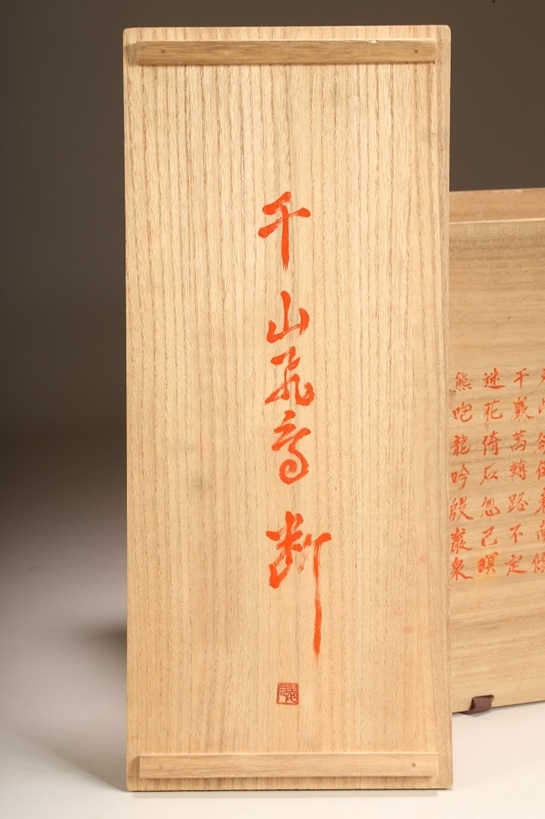 千山飛鳥断
千巖萬轉路不定
迷花倚石忽已暝
熊咆龍吟殷巖泉